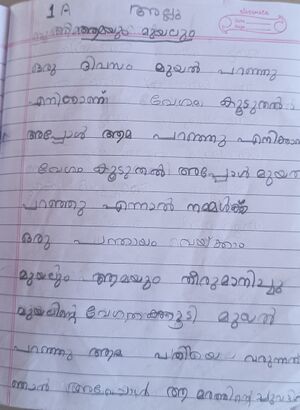 1 A
ആമയും മുയലും
ഒരു ദിവസം മുയൽ പറഞ്ഞു
എനിക്കാണ് വേഗം കൂടുതൽ
അപ്പോൾ ആമ പറഞ്ഞു എനിക്കാ
വേഗം കൂടുതൽ അപ്പോൾ മുയൽ
പറഞ്ഞു എന്നാൽ നമ്മൾക്ക്
ഒരു പന്തായം വയ്ക്കാം
മുയലും ആമയും തീരുമാനിച്ചു
മുയലിന്റെ മുയൽ
പറഞ്ഞു ആമ പതിയെ വരുന്നത്
ഞാൻ ആ മരത്തിന്റെ ചുവട്ടി